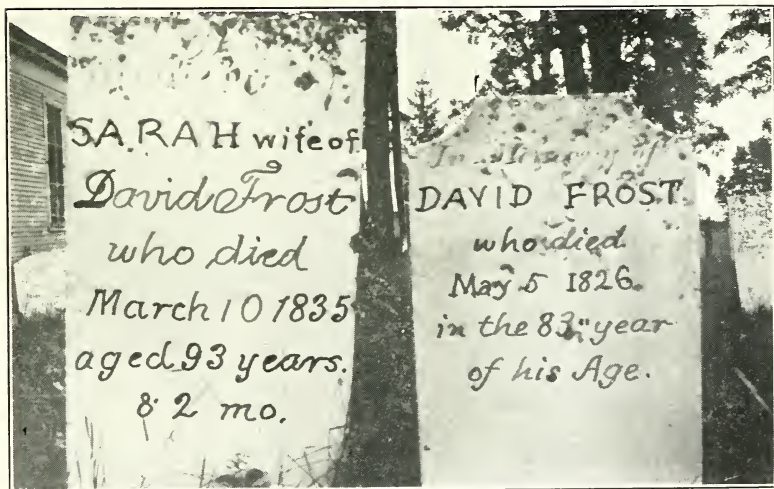 SARAH wife of
David Frost
who died
March 10 1835
aged 93 years.
& 2 mo.
In Memory of
DAVID FROST
who died
May 5 1826.
in the 83rd year
of his Age.